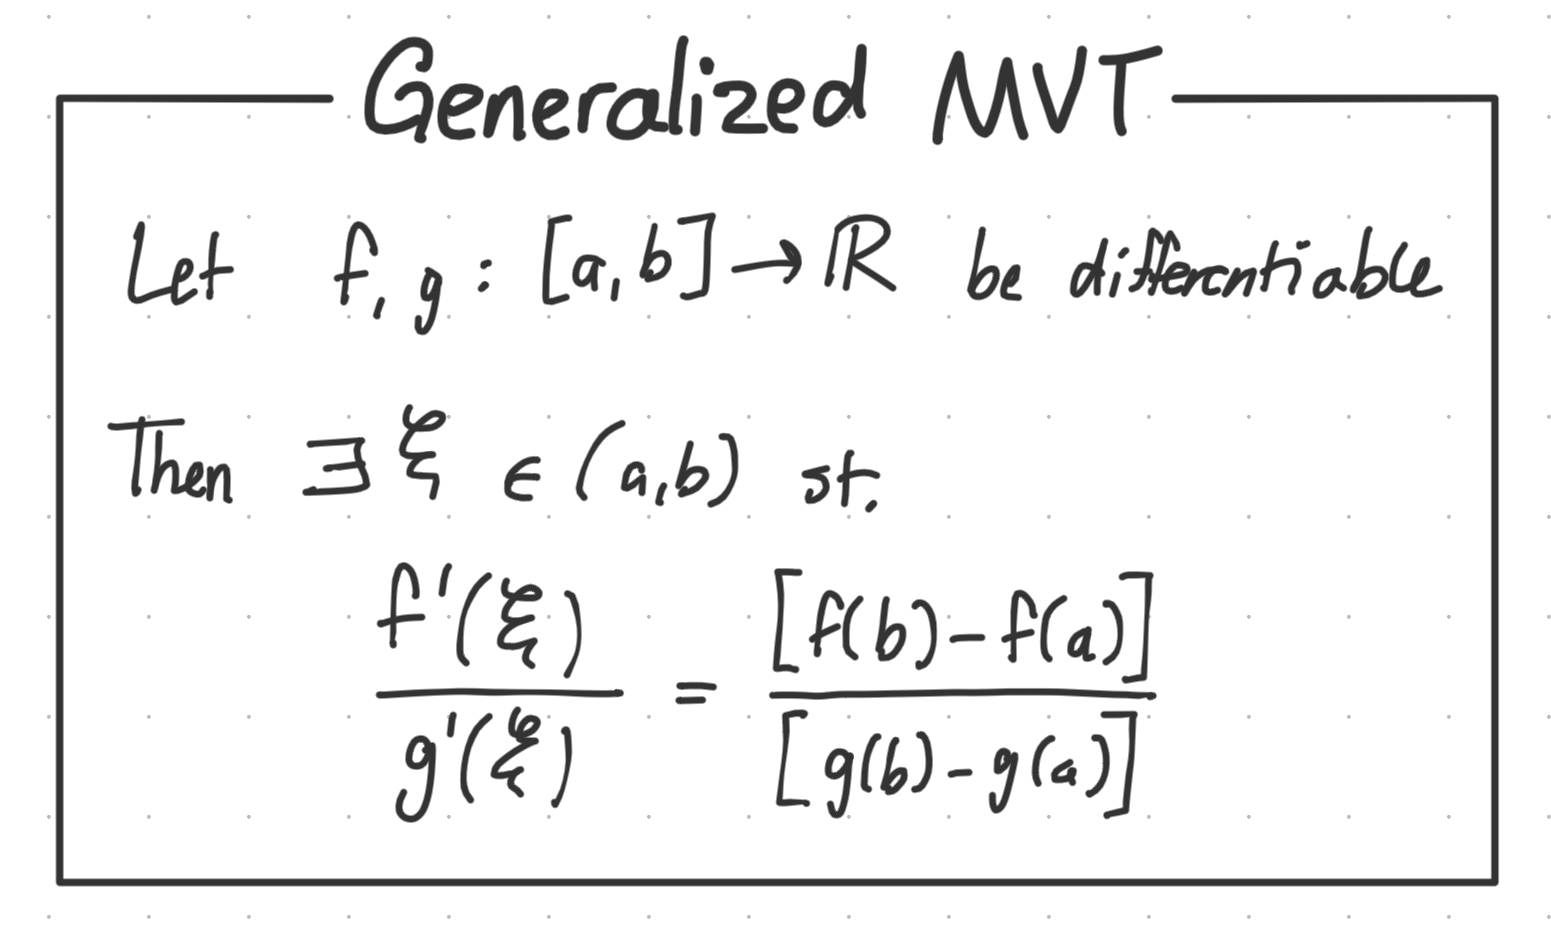 Generalized MVT
Let f, g : [a, b] → ℝ be differentiable
Then ∃ ξ ∈ (a, b) st.
f'(ξ) / g'(ξ) = [f(b) - f(a)] / [g(b) - g(a)]